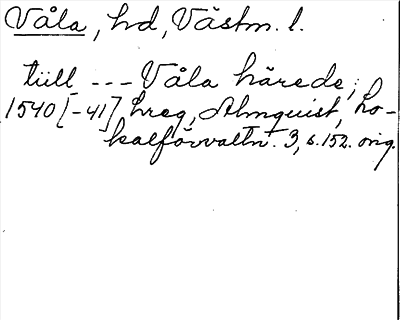 Våla, hd, Västm. l.
tiill --- Våla härede,
1540 [-41] hreg, Almquist, Lo-
kalförvaltn. 3, s. 152. orig.